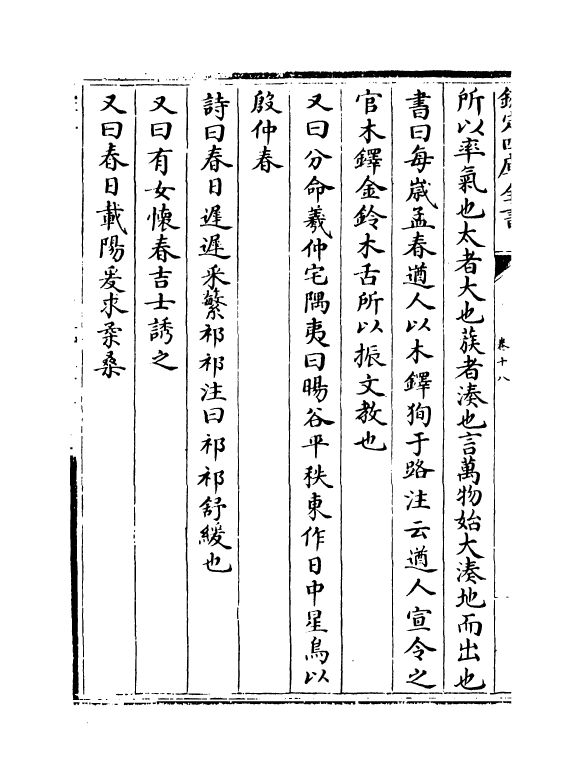 欽定四庫全書
卷十八
所以率氣也太者大也蔟者湊也言萬物始大湊地而出也
書曰每嵗孟春遒人以木鐸狥于路注云遒人宣令之
官木鐸金鈴木舌所以振文教也
又曰分命羲仲宅隅夷曰暘谷平秩東作日中星鳥以
殷仲春
詩曰春日遲遲采蘩祁祁注曰祁祁舒緩也
又曰有女懷春吉士誘之
又曰春日載陽爰求柔桑